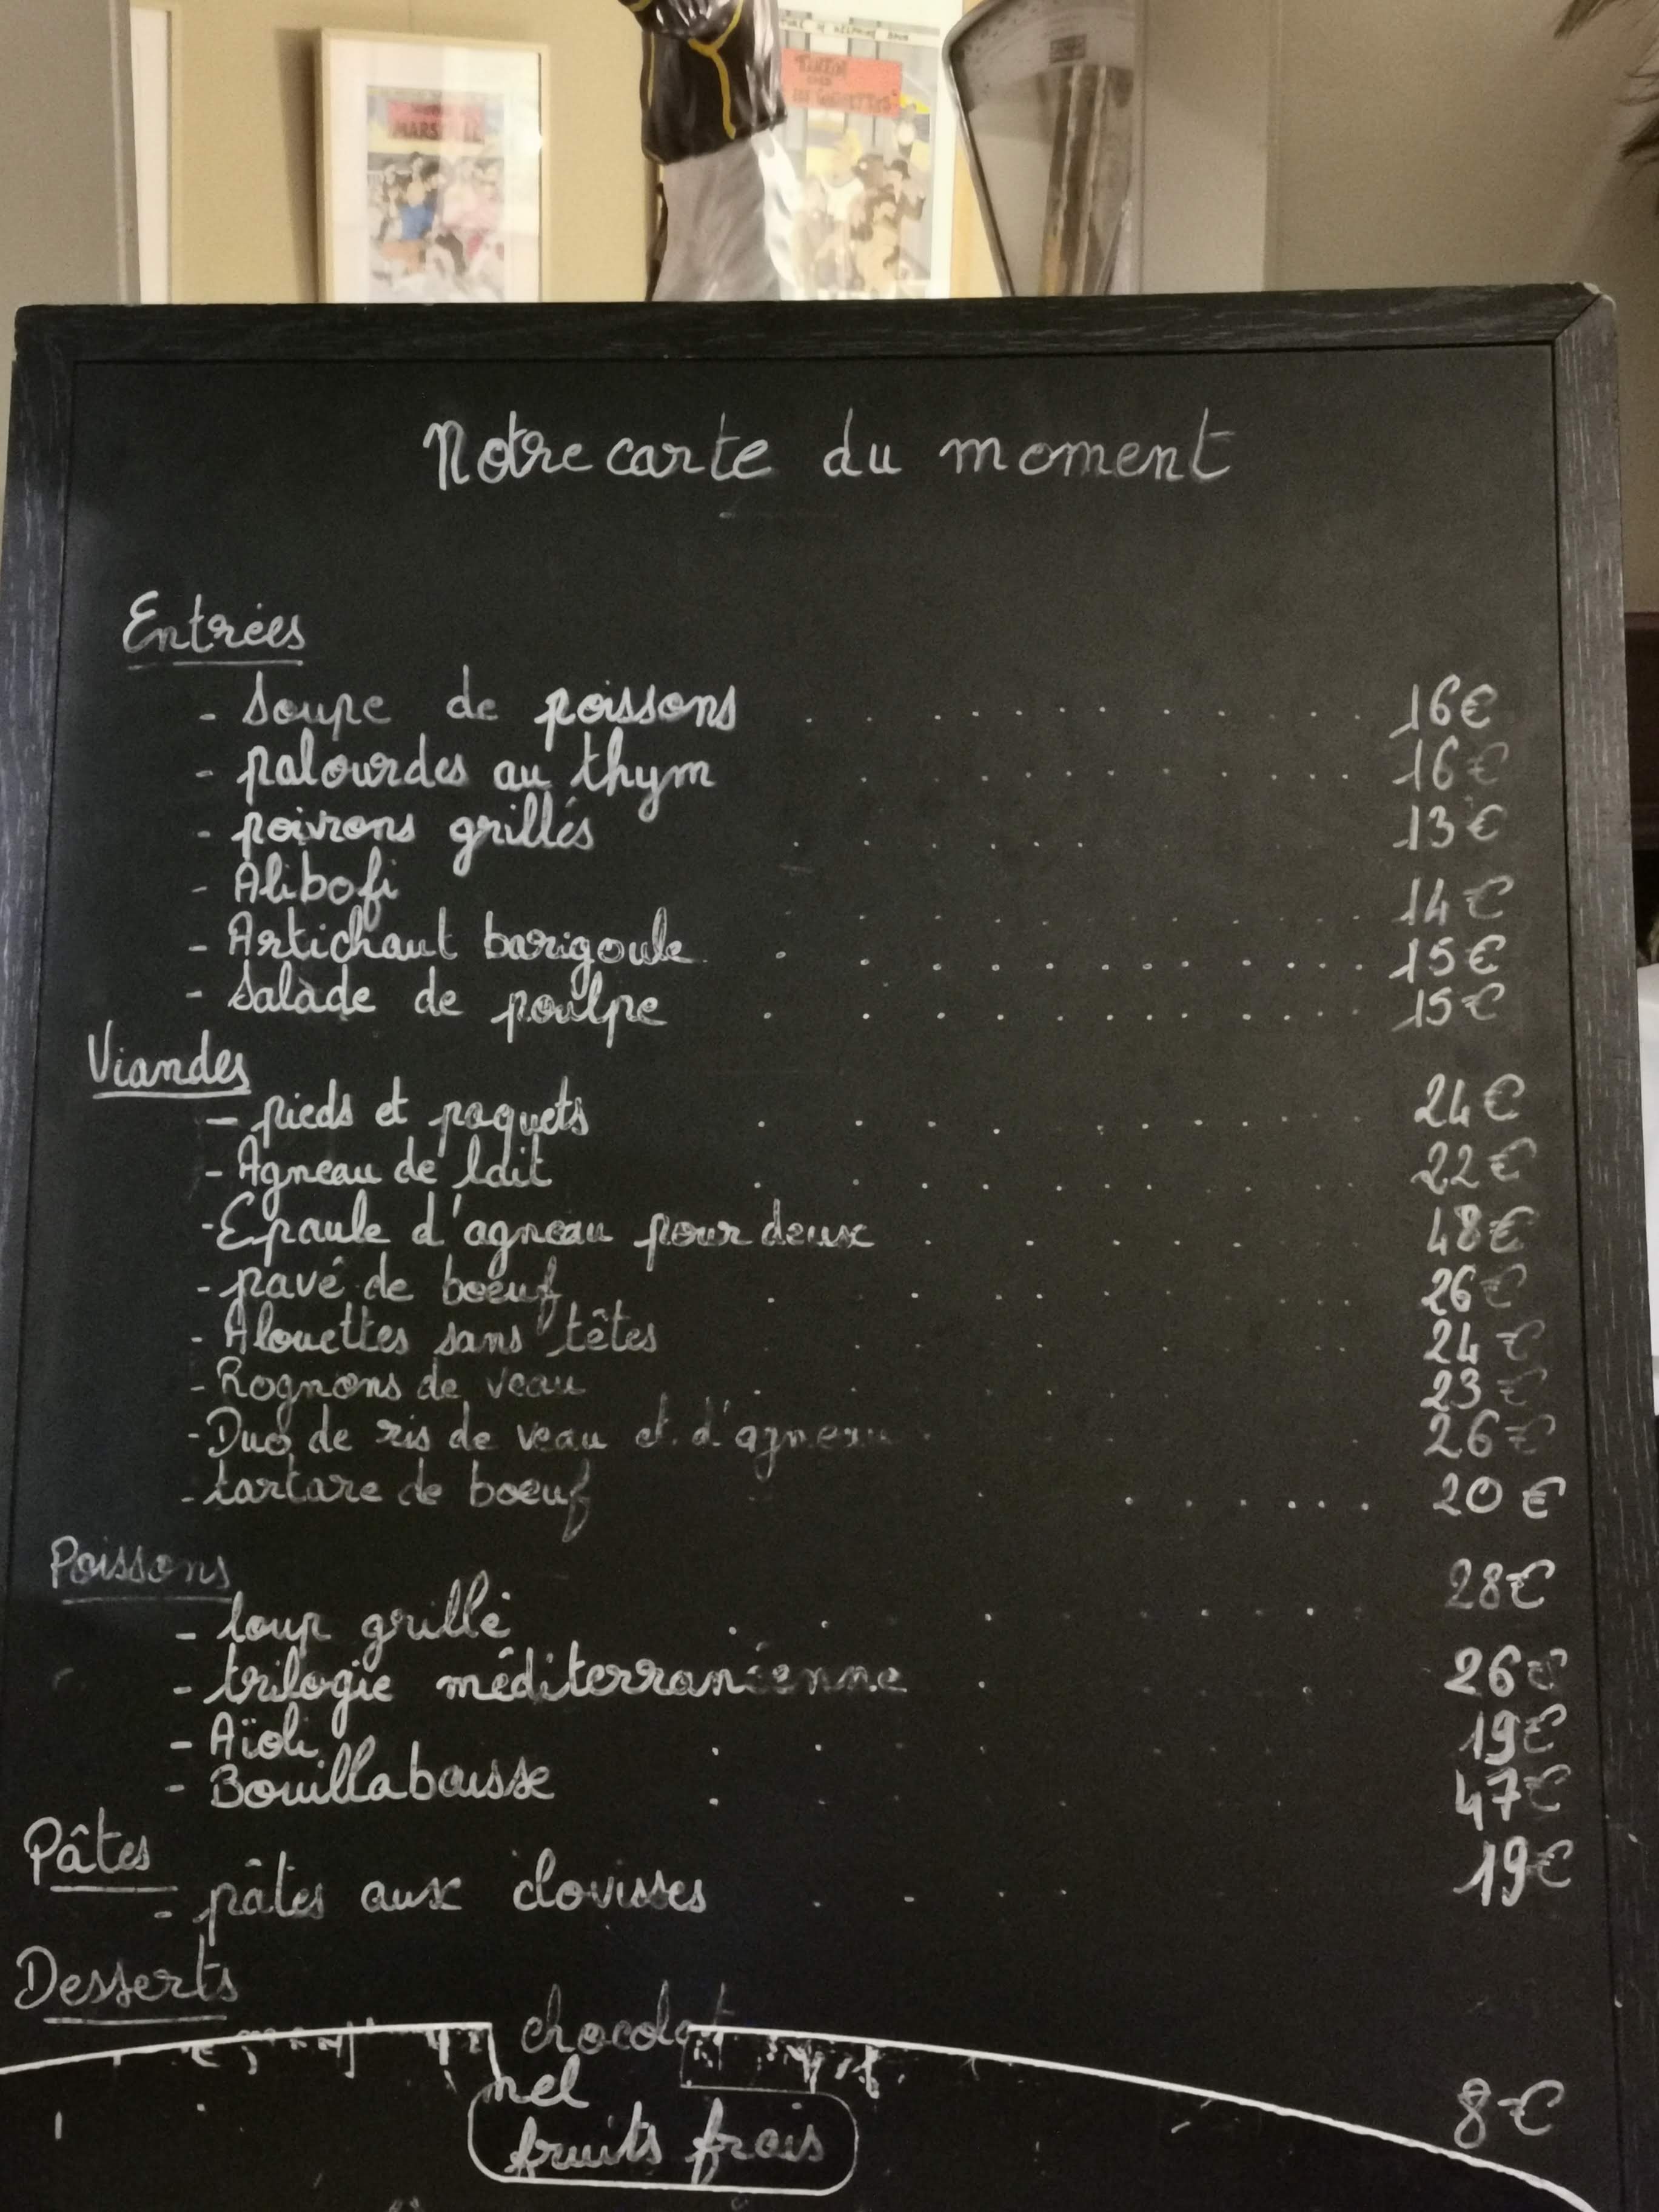 MARSEILLE
TINTIN
Notre carte du moment
Entrées
- Soupe de poissons 16€
- palourdes au thym 16€
- poivrons grillés 13€
- Alibofi 14€
- Artichaut barigoule 15€
- Salade de poulpe 15€
Viandes
- pieds et paquets 24€
- Agneau de lait 22€
- Epaule d'agneau pour deux 48€
- pavé de boeuf 26€
- Alouettes sans têtes 24€
- Rognons de veau 23€
- Duo de ris de veau et d'agneau 26€
- tartare de boeuf 20€
Poissons
- loup grillé 28€
- trilogie méditerranéenne 26€
- Aïoli 19€
- Bouillabaisse 47€
Pâtes
- pâtes aux clovisses 19€
Desserts
chocolat
mel
fruits frais 8€